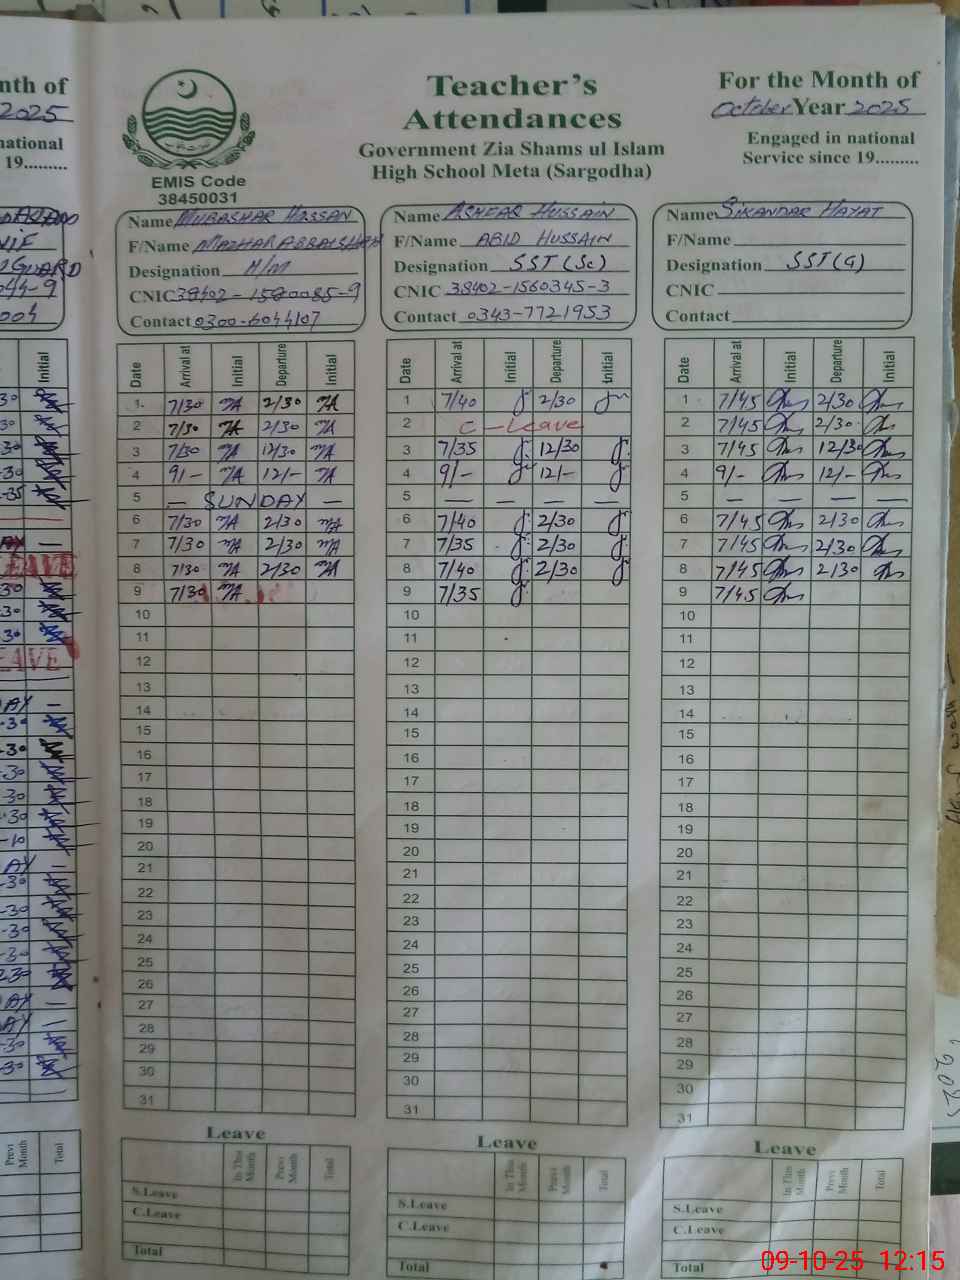 nth of
2025
national
19.........
Teacher's
Attendances
Government Zia Shams ul Islam
High School Meta (Sargodha)
EMIS Code
38450031
For the Month of
October Year 2025
Engaged in national
Service since 19.........
Name MUBASHAR HASSAN
F/Name MAZHAR ABBAS
Designation
CNIC 38402-1580085-9
Contact 0300-6044107
Name ASHFAQ HUSSAIN
F/Name ABID HUSSAIN
Designation SST (Sc)
CNIC 38402-1560345-3
Contact 0343-7721953
Name SIKANDAR HAYAT
F/Name
Designation SST (G)
CNIC
Contact
Date Arrival at Initial Departure Initial
1 7/30 MA 2/30 MA
2 7/30 MA 2/30 MA
3 7/30 MA 12/30 MA
4 9/- MA 12/- MA
5 - SUNDAY -
6 7/30 MA 2/30 MA
7 7/30 MA 2/30 MA
8 7/30 MA 2/30 MA
9 7/30 MA
10
11
12
13
14
15
16
17
18
19
20
21
22
23
24
25
26
27
28
29
30
31
Leave
In This Month Previ Month Total
S.Leave
C.Leave
Total
Date Arrival at Initial Departure Initial
1 7/40 2/30
2 C - Leave
3 7/35 12/30
4 9/- 12/-
5 — — — —
6 7/40 2/30
7 7/35 2/30
8 7/40 2/30
9 7/35
10
11
12
13
14
15
16
17
18
19
20
21
22
23
24
25
26
27
28
29
30
31
Leave
In This Month Previ Month Total
S.Leave
C.Leave
Total
Date Arrival at Initial Departure Initial
1 7/45 2/30
2 7/45 2/30
3 7/45 12/30
4 9/- 12/-
5 — — — —
6 7/45 2/30
7 7/45 2/30
8 7/45 2/30
9 7/45
10
11
12
13
14
15
16
17
18
19
20
21
22
23
24
25
26
27
28
29
30
31
Leave
In This Month Previ Month Total
S.Leave
C.Leave
Total
09-10-25 12:15